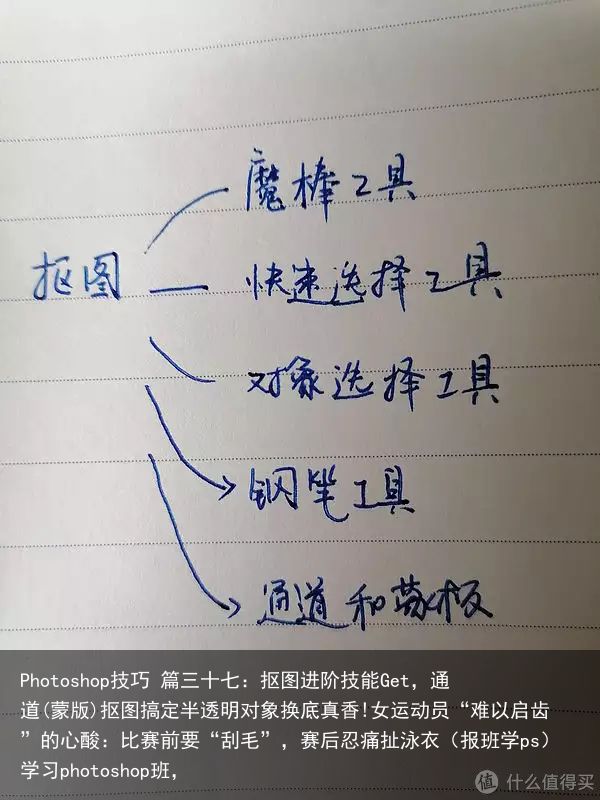 魔棒工具
抠图
快速选择工具
对象选择工具
钢笔工具
通道和蒙板
Photoshop技巧 篇三十七：抠图进阶技能Get，通
道(蒙版)抠图搞定半透明对象换底真香!女运动员“难以启齿
”的心酸：比赛前要“刮毛”，赛后忍痛扯泳衣（报班学ps）
学习photoshop班，
值 什么值得买